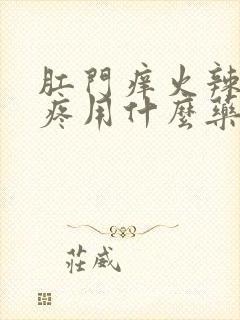 肛門痒火辣
疼用什麼藥
莊威